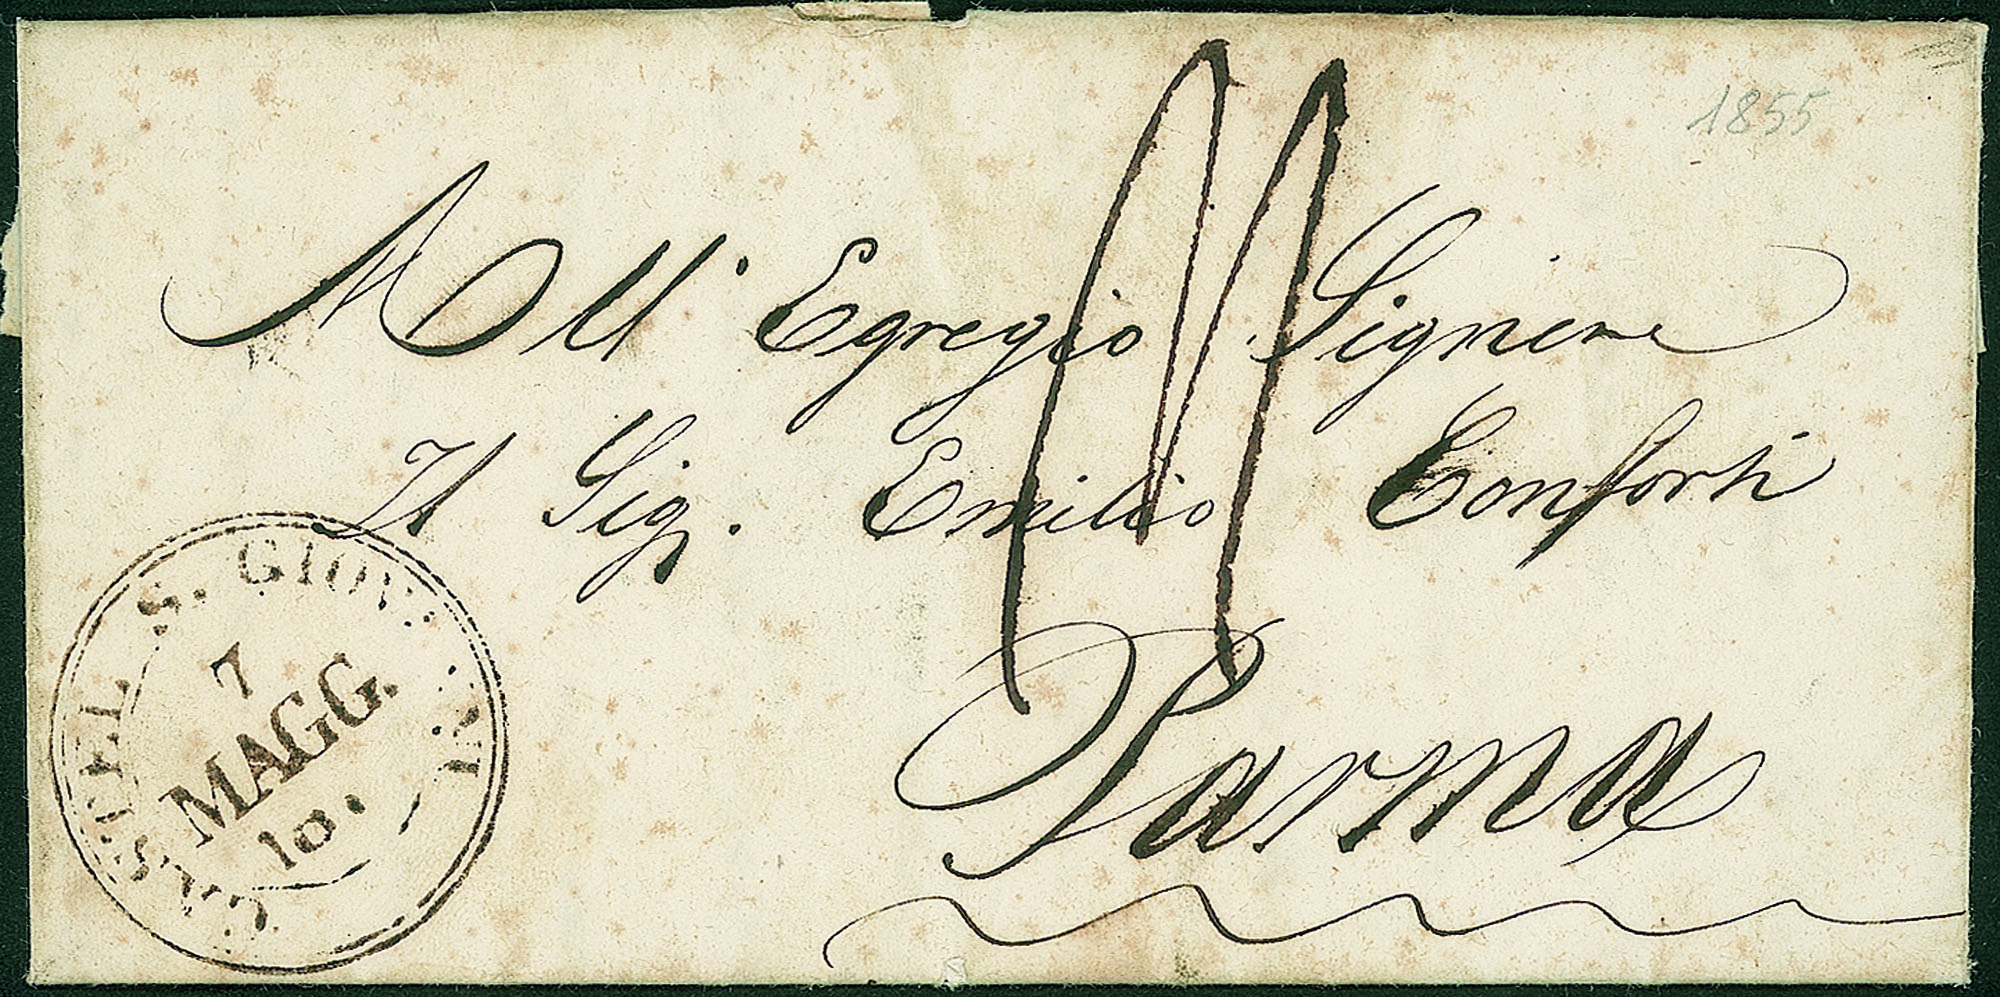 1855
All' Egregio Signore
Il Sig. Emilio Conforti
Parma
CASTEL S. GIOVANNI
7
MAGG.
18